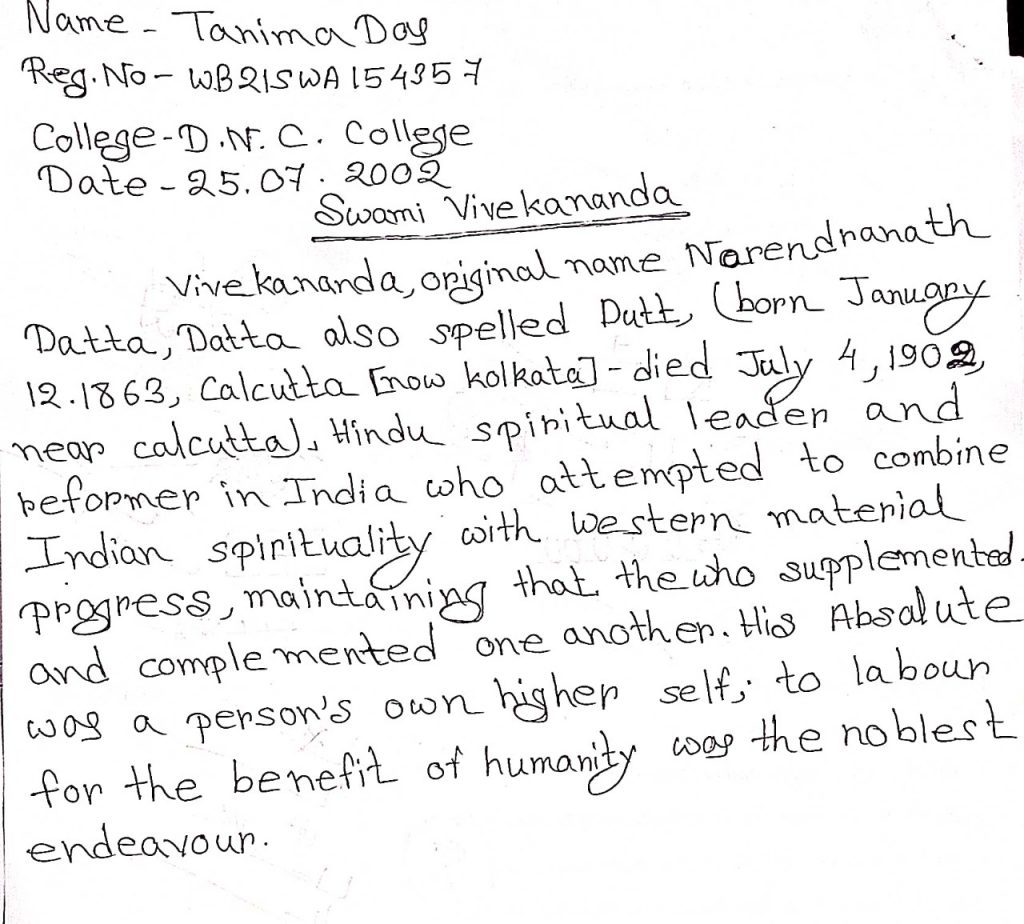 Name - Tanima Das
Reg. No - WB21SWA154357
College - D.N.C. College
Date - 25.07.2002
Swami Vivekananda
Vivekananda, original name Narendranath
Datta, Datta also spelled Dutt, (born January
12.1863, Calcutta [now kolkata] - died July 4, 1902,
near calcutta), Hindu spiritual leader and
reformer in India who attempted to combine
Indian spirituality with western material
progress, maintaining that the who supplemented
and complemented one another. His Absalute
was a person's own higher self; to labour
for the benefit of humanity was the noblest
endeavour.